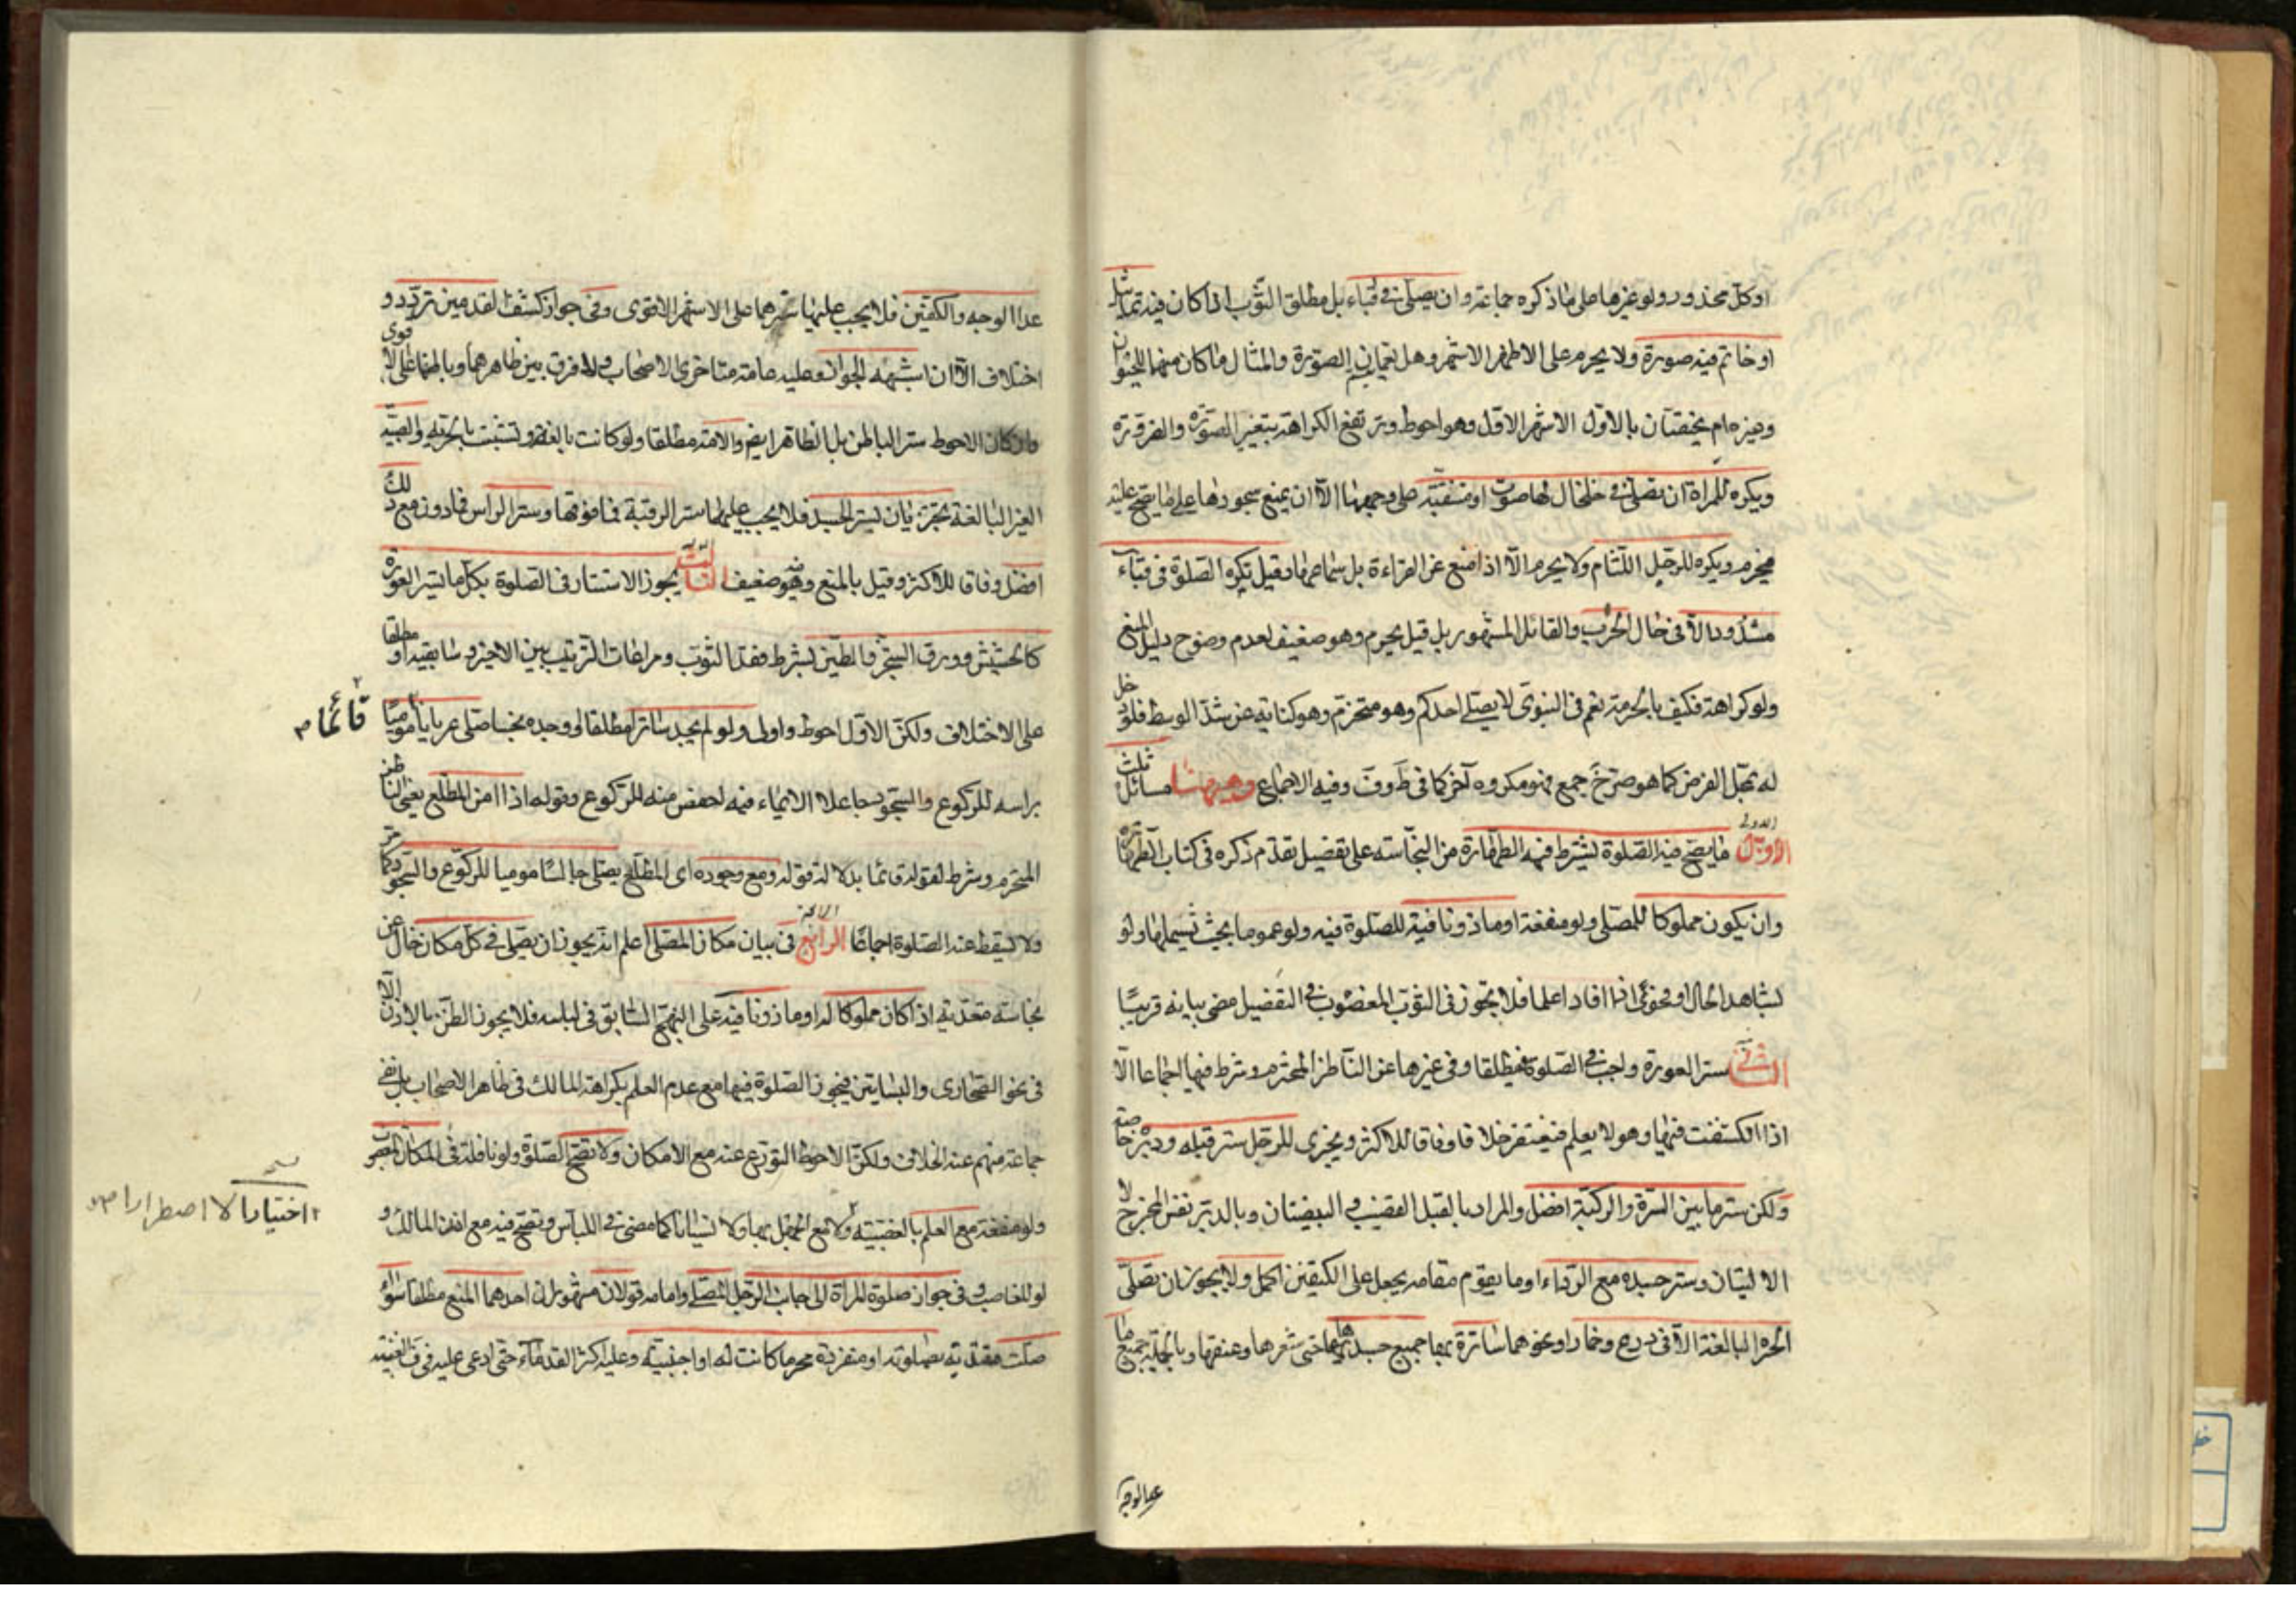 او كل محذور ولو غيرها على ما ذكره جماعة وان يصلى فى قباء بل مطلق الثوب اذا كان فيه تماثيل
او خاتم فيه صورة ولا يحرم على الاظهر الاشهر وهل يعمان الصورة والمثال ما كان منهما للحيوان
وغيره ام يختصان بالاول الاشهر الاول وهو احوط وترتفع الكراهة بتغير الصورة والضرورة
ويكره للمراة ان تصلى فى خلخال لها صوت او متنقبة على وجهها الا ان يمنع سجودها على ما يصح عليه
فيحرم ويكره للرجل اللثام ولا يحرم الا اذا منع عن القراءة بل سماعها وقيل يكره الصلوة فى قباء
مشدود الا فى حال الحرب والقائل المشهور بل قيل يحرم وهو ضعيف لعدم وضوح دليل المنع
ولو كراهة فكيف بالحرمة نعم فى النبوى لا يصلى احدكم وهو متحزم وهو كناية عن شد الوسط فلو
له محل الفرض كما هو صرح جمع فهو مكروه آخر كما فى وفيه الاجماع وهيهنا مسائل ثلث
الاولى ما يصح فيه الصلوة يشترط فيه الطهارة من النجاسة على تفصيل تقدم ذكره فى كتاب الطهارة
وان يكون مملوكا للمصلى ولو منفعة او ماذونا فيه للصلوة فيه ولو عموما بحيث تشملها ولو
بشاهد الحال او فحوى اذا افادا علما فلا تجوز فى الثوب المغصوب التفصيل مضى بيانه قريبًا
الثانى ستر العورة واجب فى الصلوة مطلقا وفى غيرها عن الناظر المحترم وشرط فيها اجماعا الا
اذا انكشفت فيها وهو لا يعلم فيغتفر خلافا وفاقا للاكثر ويجزى للرجل ستر قبله ودبره خاصة
ولكن ستر ما بين السرة والركبة افضل والمراد بالقبل القضيب و البيضتان وبالدبر نفس المخرج لا
الاليتان وستر جسده مع الرداء او ما يقوم مقامه يجعل على الكتفين اكمل ولا يجوز ان تصلى
الحرة البالغة الا فى درع وخمار او نحوهما ساترة بهما جميع جسدها حتى شعرها وعنقها وبالجملة جميع ما
عدا الوجه
عدا الوجه والكفين فلا يجب عليها سترهما على الاشهر الاقوى وفى جواز كشف القدمين تردد و
اختلاف الا ان اشبهه الجواز وعليه عامة متاخرى الاصحاب ولا فرق بين ظاهرهما وباطنهما على الاقوى
وان كان الاحوط ستر الباطن بل الظاهر ايضا والامة مطلقا ولو كانت بالغة و تشبثت بالحرية والصبية
الغير البالغة تجتزيان بستر الجسد فلا يجب عليهما ستر الرقبة فما فوقها وستر الراس فما دونه مع ذلك
افضل وفاقا للاكثر وقيل بالمنع وهو ضعيف الثالث يجوز الاستتار فى الصلوة بكل ما يستر العورة
كالحشيش وورق الشجر والطين بشرط فقد الثوب ومراعات الترتيب بين الاخير وسابقيه او مطلقا
على الاختلاف ولكن الاول احوط واولى ولو لم يجد ساترا مطلقا لو وحده نجسا صلى عريانا موميًا
قائما
براسه للركوع والسجود جاعلا الايماء فيه اخفض منه للركوع وقوله اذا امن المطلع يعنى الناظر
المحترم وشرط لقوله قائما بدلالة قوله ومع وجوده اى المطلع يصلى جالسًا موميا للركوع والسجود
ولا يسقط عنه الصلوة اجماعًا الرابع فى بيان مكان المصلى اعلم انه يجوز ان يصلى فى كل مكان خال عن
نجاسة متعدية اذا كان مملوكا له او ماذونا فيه على النهج السابق فى لباسه فلا يجوز الظن بالاذن الا
فى نحو الصحارى والبساتين فيجوز الصلوة فيها مع عدم العلم بكراهة المالك فى ظاهر الاصحاب بل نفى
جماعة منهم عنه الخلاف ولكن الاحوط التورع عنه مع الامكان ولا تصح الصلوة ولو نافلة فى المكان المغصوب
ولو منفعة مع العلم بالغصبية ولا مع الجهل بها ولا نسيانا كما مضى فى اللباس وتصح فيه مع اذن المالك و
اختيارا لا اضطرارا
لو للغاصب وفى جواز صلوة المراة الى جانب الرجل المصلى وامامه قولان مشهوران احدهما المنع مطلقا سواء
صلت مقتدية بصلوته او منفردة محرما كانت له او اجنبية وعليه اكثر القدماء حتى ادعى عليه فى الغنية